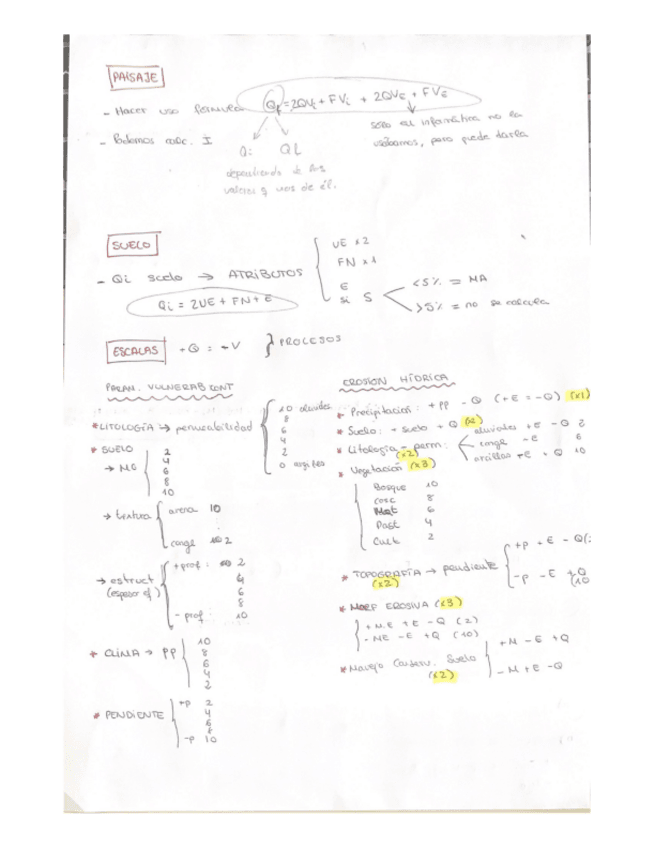 PAISAJE
- Hacer uso formula Qf = 2QVi + FVi + 2QVE + FVE
solo el informática no la
usábamos, pero puede darla
- Podemos calc. I
Qi QL
dependiendo de los
valores q nos de él.
SUELO
- Qi suelo → ATRIBUTOS
VE x 2
FN x 1
E
si S
<5% = MA
>5% = no se calcula
Qi = 2VE + FN + E
ESCALAS +Q = -V } PROCESOS
PARAM. VULNERAB CONT
* LITOLOGÍA → permeabilidad
10 aluviales
8
6
4
2
0 margas
* SUELO
→ MO
2
4
6
8
10
→ textura
arena 10
congl 2
→ estruct
(espesor ef)
+ prof: 2
4
6
8
- prof: 10
* CLIMA → PP
10
8
6
4
2
* PENDIENTE
+p 2
4
6
8
-p 10
EROSIÓN HÍDRICA
* Precipitación: +PP -Q (+E = -Q) (x1)
* Suelo: + suelo + Q (x2)
* Litología - perm: (x2)
aluviales +E -Q 2
congl -E 6
arcillas +E +Q 10
* Vegetación (x3)
Bosque 10
8
Mat 6
Past 4
Cult 2
* TOPOGRAFÍA → pendiente (x2)
+p +E -Q (2
-p -E +Q (10
* MORF EROSIVA (x3)
+ M.E +E -Q (2)
- ME -E +Q (10)
* Manejo Conserv. Suelo (x2)
+M -E +Q
-M +E -Q